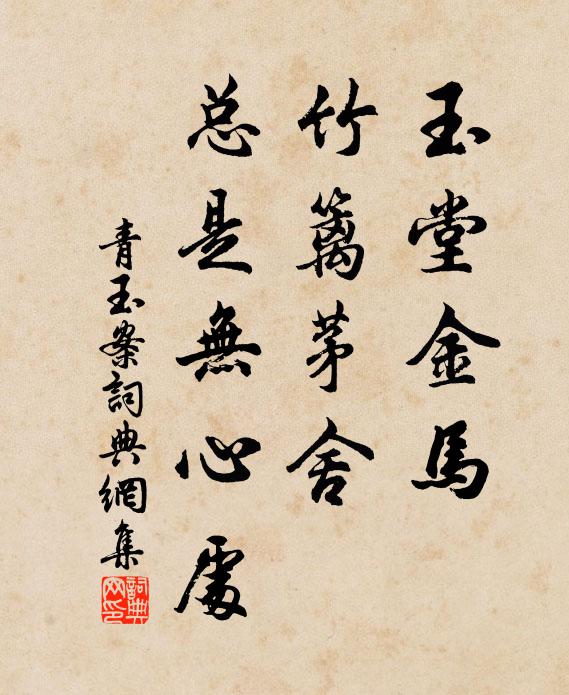 玉堂金馬
竹籬茅舍
总是無心處
青玉案詞典網集
詞典網印